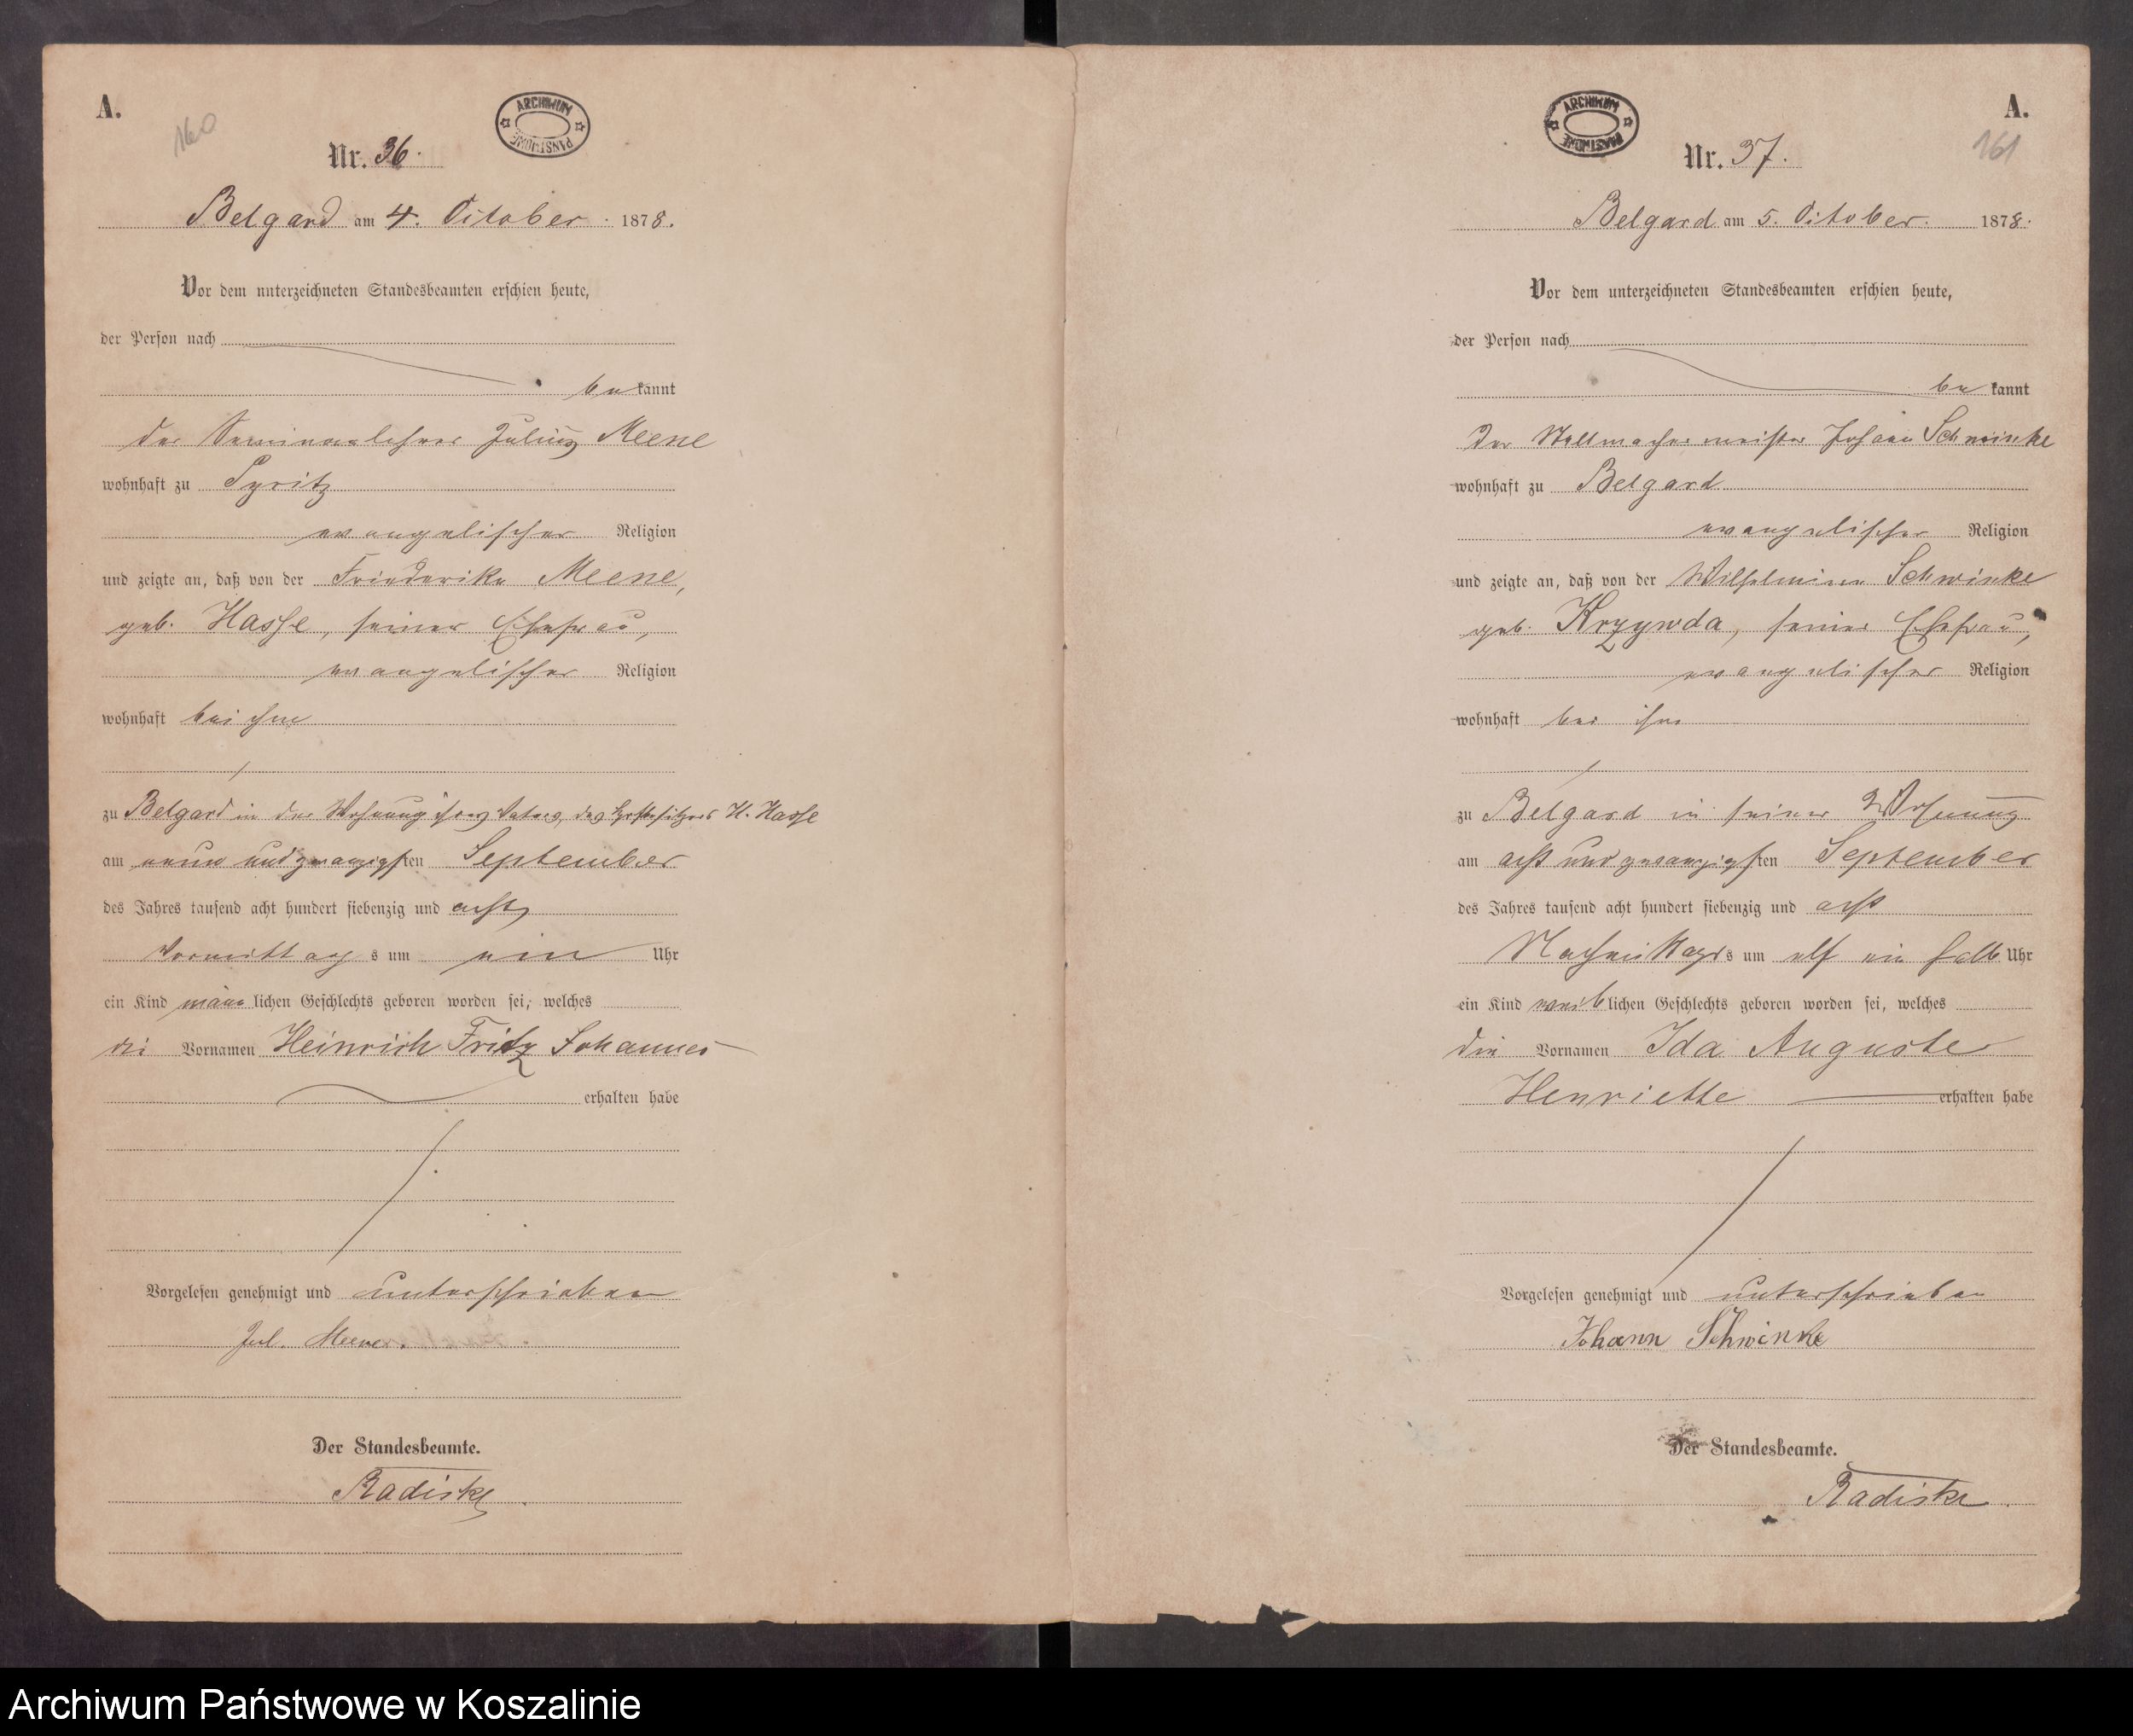 A.
160
ARCHIWUM PAŃSTWOWE
Nr. 36.
Belgard am 4. October 1878.
Vor dem unterzeichneten Standesbeamten erschien heute,
der Person nach
bekannt
der Seminarlehrer Julius Meene
wohnhaft zu Pyritz
evangelischer Religion
und zeigte an, daß von der Friederike Meene,
geb. Hasse, seiner Ehefrau,
evangelischer Religion
wohnhaft bei ihm
zu Belgard in der Wohnung ihres Vaters, des H. Hasse
am neun und zwanzigsten September
des Jahres tausend acht hundert siebenzig und acht
Vormittags um ein Uhr
ein Kind männlichen Geschlechts geboren worden sei, welches
die Vornamen Heinrich Fritz Johannes
erhalten habe
Vorgelesen genehmigt und unterschrieben
Jul. Meene.
Der Standesbeamte.
Radiske
A.
161
ARCHIWUM PAŃSTWOWE
Nr. 37.
Belgard am 5. October 1878.
Vor dem unterzeichneten Standesbeamten erschien heute,
der Person nach
bekannt
der Stellmachermeister Johann Schwinke
wohnhaft zu Belgard
evangelischer Religion
und zeigte an, daß von der Wilhelmine Schwinke
geb. Krzywda, seiner Ehefrau,
evangelischer Religion
wohnhaft bei ihm
zu Belgard in seiner Wohnung
am acht und zwanzigsten September
des Jahres tausend acht hundert siebenzig und acht
Nachmittags um elf ein halb Uhr
ein Kind weiblichen Geschlechts geboren worden sei, welches
die Vornamen Ida Auguste
Henriette erhalten habe
Vorgelesen genehmigt und unterschrieben
Johann Schwinke
Der Standesbeamte.
Radiske
Archiwum Państwowe w Koszalinie